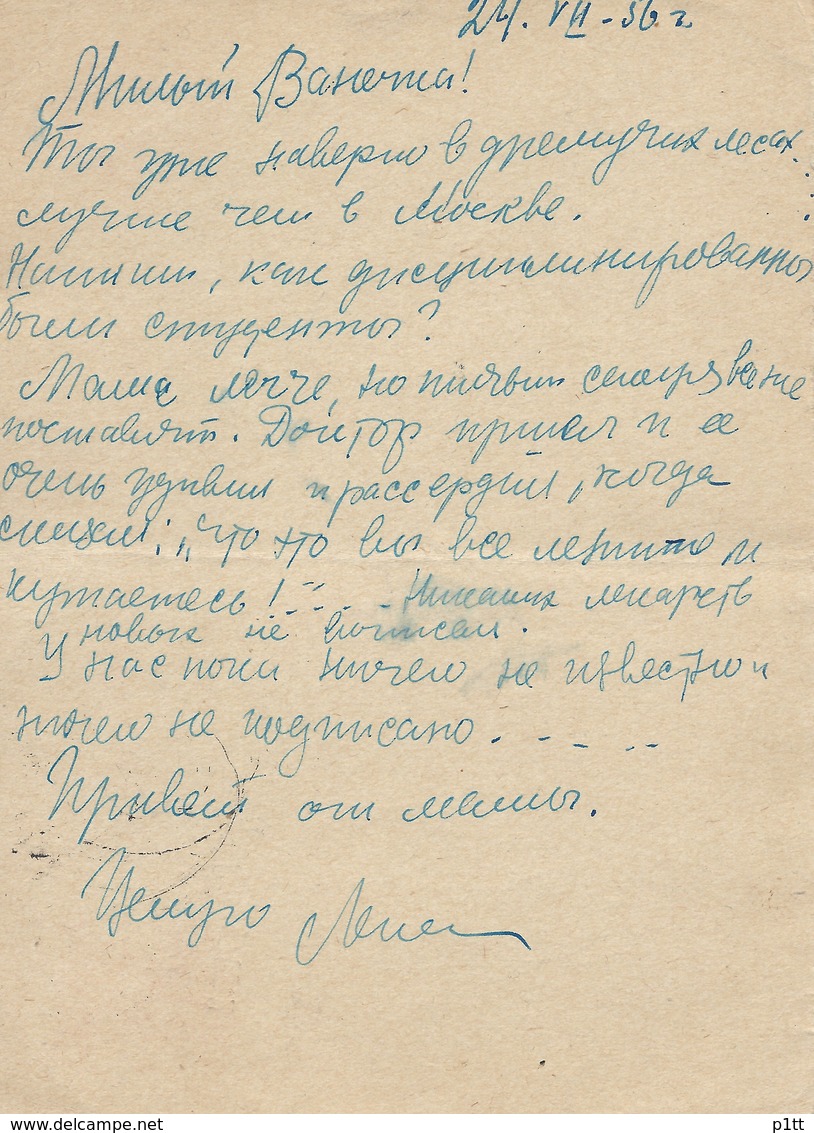 24. VII - 56 г
Милый Ванечка!
Ты уже наверно в дремучих лесах.
лучше чем в Москве.
Напиши, как дисциплинированны
были студенты?
Маме легче, но пиявки все же
поставят. Доктор пришел и ее
очень удивил и рассердил, когда
сказал: „Что это вы все лежите и
кутаетесь!" - - - Никаких лекарств
новых не
У нас пока ничего не известно и
ничего не подписано. - - - -
Привет от мамы.
Целую
www.delcampe.net
p1tt